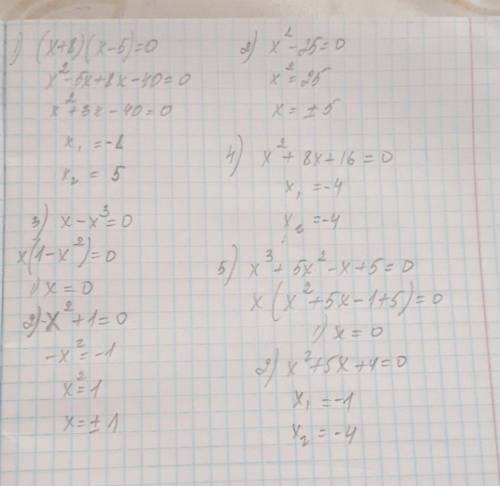 1) (x+8)(x-5)=0
x²-5x+8x-40=0
x²+3x-40=0
x₁=-8
x₂=5
2) x²-25=0
x²=25
x=±5
3) x-x³=0
x(1-x²)=0
1) x=0
2) -x²+1=0
-x²=-1
x²=1
x=±1
4) x²+8x+16=0
x₁=-4
x₂=-4
5) x³+5x²-x+5=0
x(x²+5x-1+5)=0
1) x=0
2) x²+5x+4=0
x₁=-1
x₂=-4